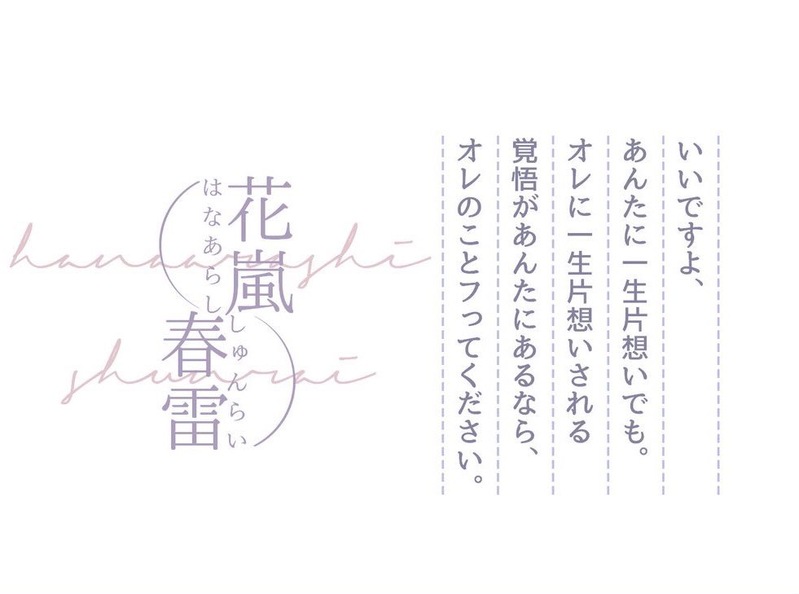 いいですよ、
あんたに一生片想いでも。
オレに一生片想いされる
覚悟があんたにあるなら、
オレのことフってください。
花嵐
はなあらし
春雷
しゅんらい
hanaarashi
shunrai